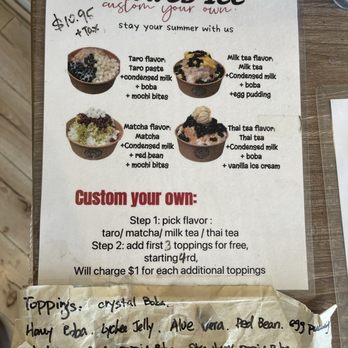 custom your own.
$10.95
+ Tax
stay your summer with us
Taro flavor:
Taro paste
+condensed milk
+ boba
+ mochi bites
Milk tea flavor:
Milk tea
+Condensed milk
+ boba
+egg pudding
Matcha flavor:
Matcha
+Condensed milk
+ red bean
+ mochi bites
Thai tea flavor:
Thai tea
+condensed milk
+ boba
+ vanilla ice cream
Custom your own:
Step 1: pick flavor :
taro/ matcha/ milk tea / thai tea
Step 2: add first 3 toppings for free,
starting 4rd,
Will charge $1 for each additional toppings
Toppings. Crystal Boba.
Honey Boba. Lychee Jelly. Aloe Vera. Red Bean. egg pudding